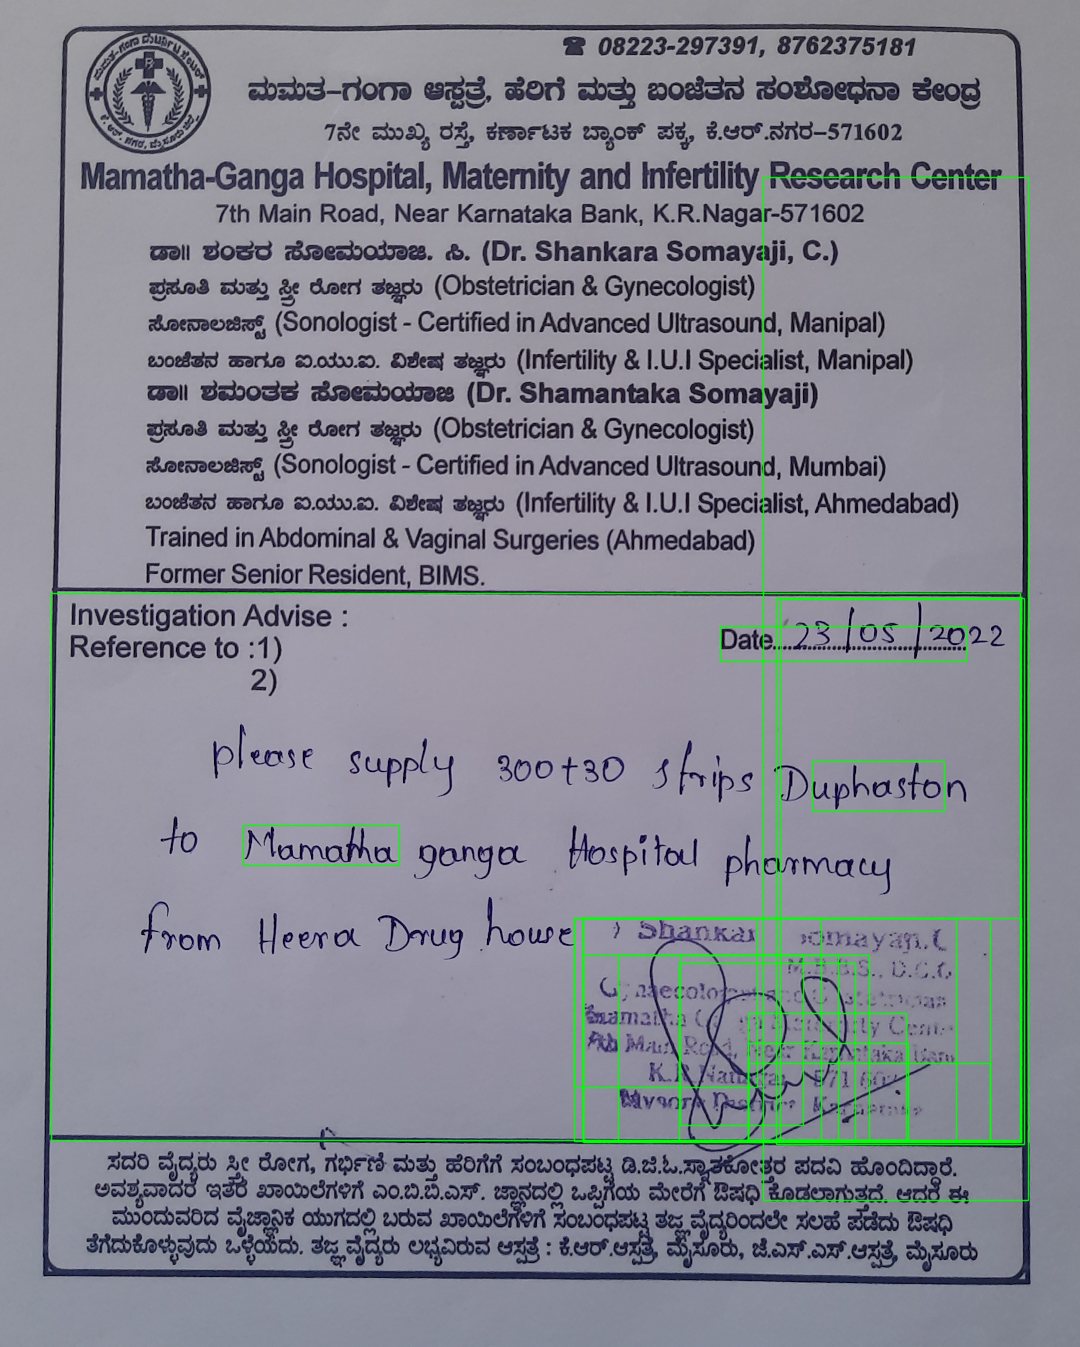 ☎ 08223-297391, 8762375181
ಮಮತ-ಗಂಗಾ ಆಸ್ಪತ್ರೆ, ಹೆರಿಗೆ ಮತ್ತು ಬಂಜೆತನ ಸಂಶೋಧನಾ ಕೇಂದ್ರ
7ನೇ ಮುಖ್ಯ ರಸ್ತೆ, ಕರ್ಣಾಟಕ ಬ್ಯಾಂಕ್ ಪಕ್ಕ, ಕೆ.ಆರ್.ನಗರ-571602
Mamatha-Ganga Hospital, Maternity and Infertility Research Center
7th Main Road, Near Karnataka Bank, K.R.Nagar-571602
ಡಾ|| ಶಂಕರ ಸೋಮಯಾಜಿ. ಸಿ. (Dr. Shankara Somayaji, C.)
ಪ್ರಸೂತಿ ಮತ್ತು ಸ್ತ್ರೀ ರೋಗ ತಜ್ಞರು (Obstetrician & Gynecologist)
ಸೋನಾಲಜಿಸ್ಟ್ (Sonologist - Certified in Advanced Ultrasound, Manipal)
ಬಂಜೆತನ ಹಾಗೂ ಐ.ಯು.ಐ. ವಿಶೇಷ ತಜ್ಞರು (Infertility & I.U.I Specialist, Manipal)
ಡಾ|| ಶಮಂತಕ ಸೋಮಯಾಜಿ (Dr. Shamantaka Somayaji)
ಪ್ರಸೂತಿ ಮತ್ತು ಸ್ತ್ರೀ ರೋಗ ತಜ್ಞರು (Obstetrician & Gynecologist)
ಸೋನಾಲಜಿಸ್ಟ್ (Sonologist - Certified in Advanced Ultrasound, Mumbai)
ಬಂಜೆತನ ಹಾಗೂ ಐ.ಯು.ಐ. ವಿಶೇಷ ತಜ್ಞರು (Infertility & I.U.I Specialist, Ahmedabad)
Trained in Abdominal & Vaginal Surgeries (Ahmedabad)
Former Senior Resident, BIMS.
Investigation Advise :
Reference to :1)
Date..23/05/2022
2)
please supply 300+30 strips Duphaston
to Mamatha ganga Hospital pharmacy
from Heera Drug house
Shankar
M.B.B.S., D.G.O
Main Road, Near Karnataka Bank
K.R. Nagar 571 602
Mysore District Karnataka
ಸದರಿ ವೈದ್ಯರು ಸ್ತ್ರೀ ರೋಗ, ಗರ್ಭಿಣಿ ಮತ್ತು ಹೆರಿಗೆಗೆ ಸಂಬಂಧಪಟ್ಟ ಡಿ.ಜಿ.ಓ.ಸ್ನಾತಕೋತ್ತರ ಪದವಿ ಹೊಂದಿದ್ದಾರೆ.
ಅವಶ್ಯವಾದರೆ ಇತರೆ ಖಾಯಿಲೆಗಳಿಗೆ ಎಂ.ಬಿ.ಬಿ.ಎಸ್. ಜ್ಞಾನದಲ್ಲಿ ಒಪ್ಪಿಗೆಯ ಮೇರೆಗೆ ಔಷಧಿ ಕೊಡಲಾಗುತ್ತದೆ. ಆದರೆ ಈ
ಮುಂದುವರಿದ ವೈಜ್ಞಾನಿಕ ಯುಗದಲ್ಲಿ ಬರುವ ಖಾಯಿಲೆಗಳಿಗೆ ಸಂಬಂಧಪಟ್ಟ ತಜ್ಞ ವೈದ್ಯರಿಂದಲೇ ಸಲಹೆ ಪಡೆದು ಔಷಧಿ
ತೆಗೆದುಕೊಳ್ಳುವುದು ಒಳ್ಳೆಯದು. ತಜ್ಞ ವೈದ್ಯರು ಲಭ್ಯವಿರುವ ಆಸ್ಪತ್ರೆ : ಕೆ.ಆರ್.ಆಸ್ಪತ್ರೆ, ಮೈಸೂರು, ಜೆ.ಎಸ್.ಎಸ್.ಆಸ್ಪತ್ರೆ, ಮೈಸೂರು